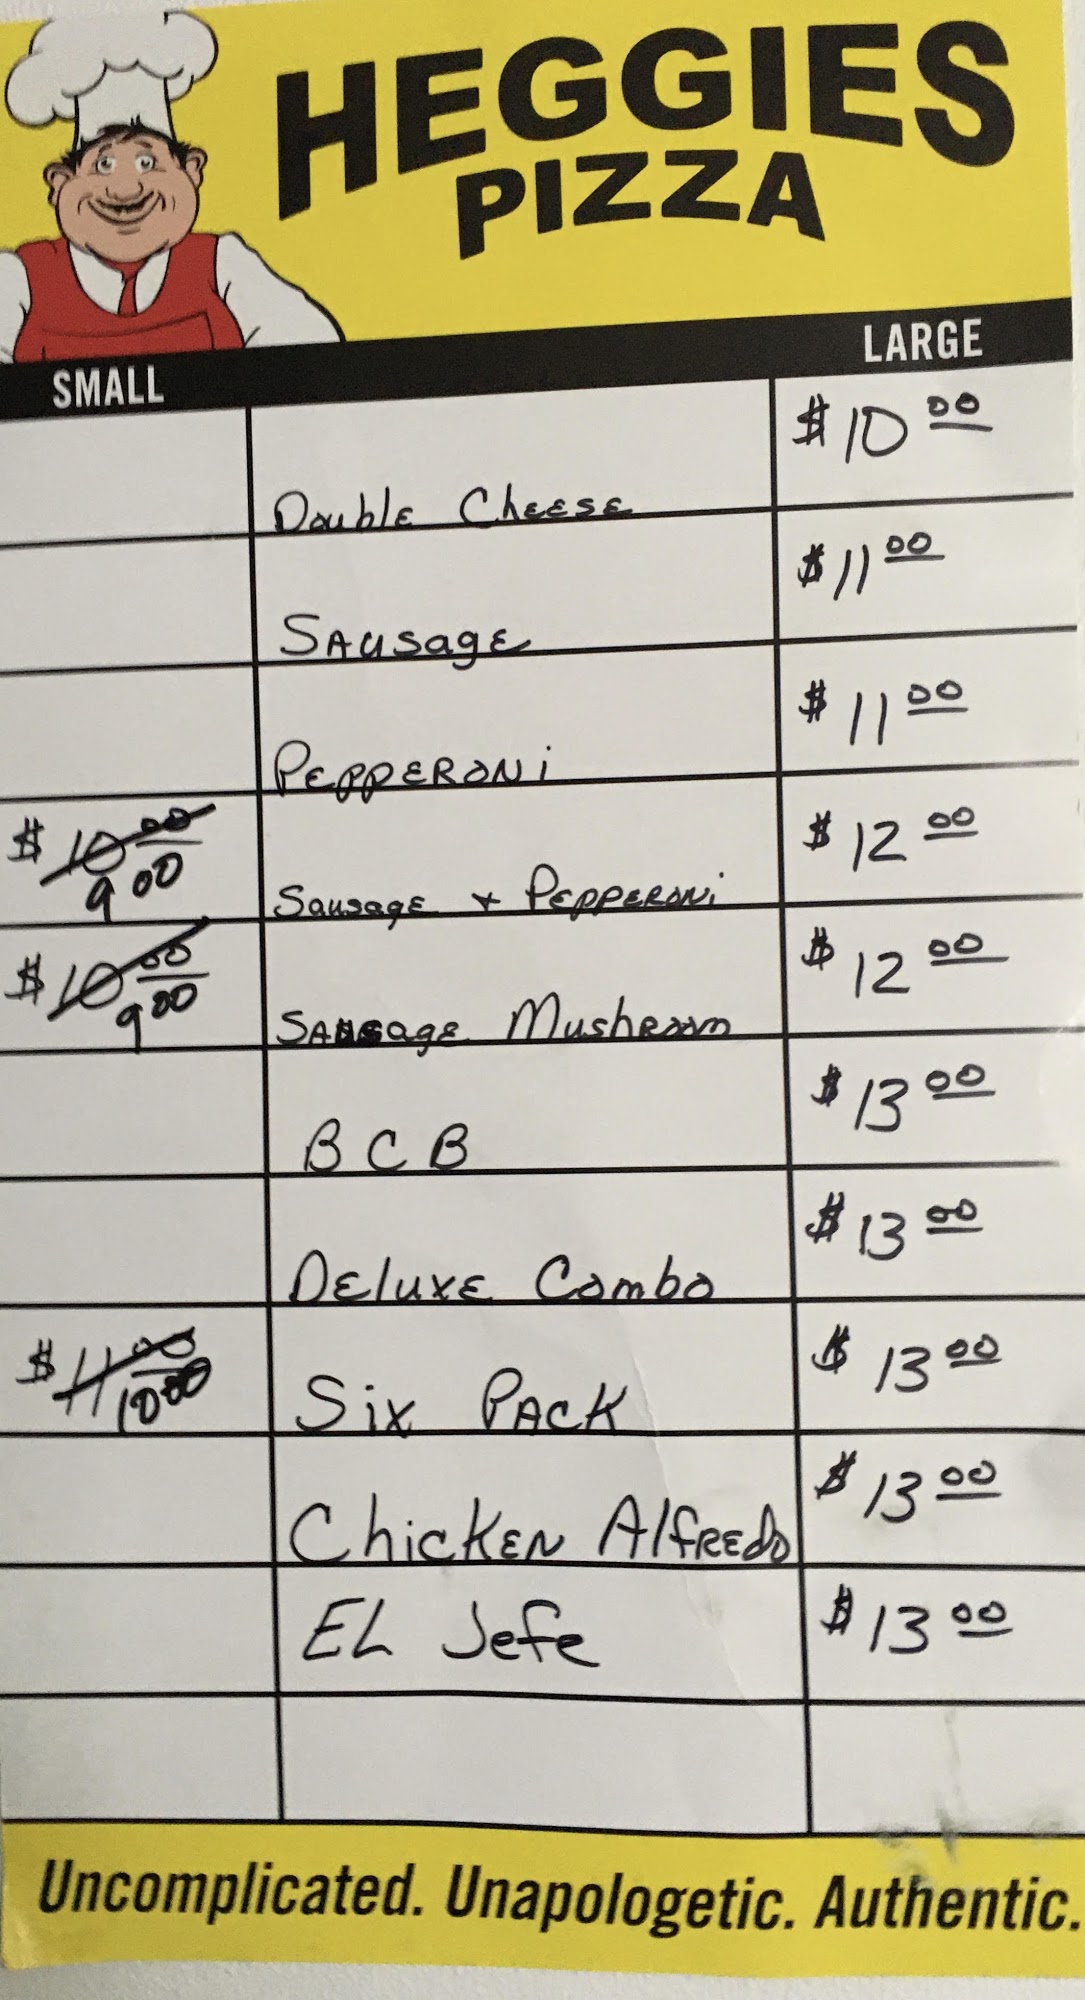 HEGGIES
PIZZA
SMALL LARGE
Double Cheese $10 00
Sausage $11 00
Pepperoni $11 00
$ 10 00 9 00 Sausage + Pepperoni $12 00
$ 10 00 9 00 Sausage Mushroom $12 00
BCB $13 00
Deluxe Combo $13 00
$ 11 00 10 00 Six Pack $13 00
Chicken Alfredo $13 00
EL Jefe $13 00
Uncomplicated. Unapologetic. Authentic.